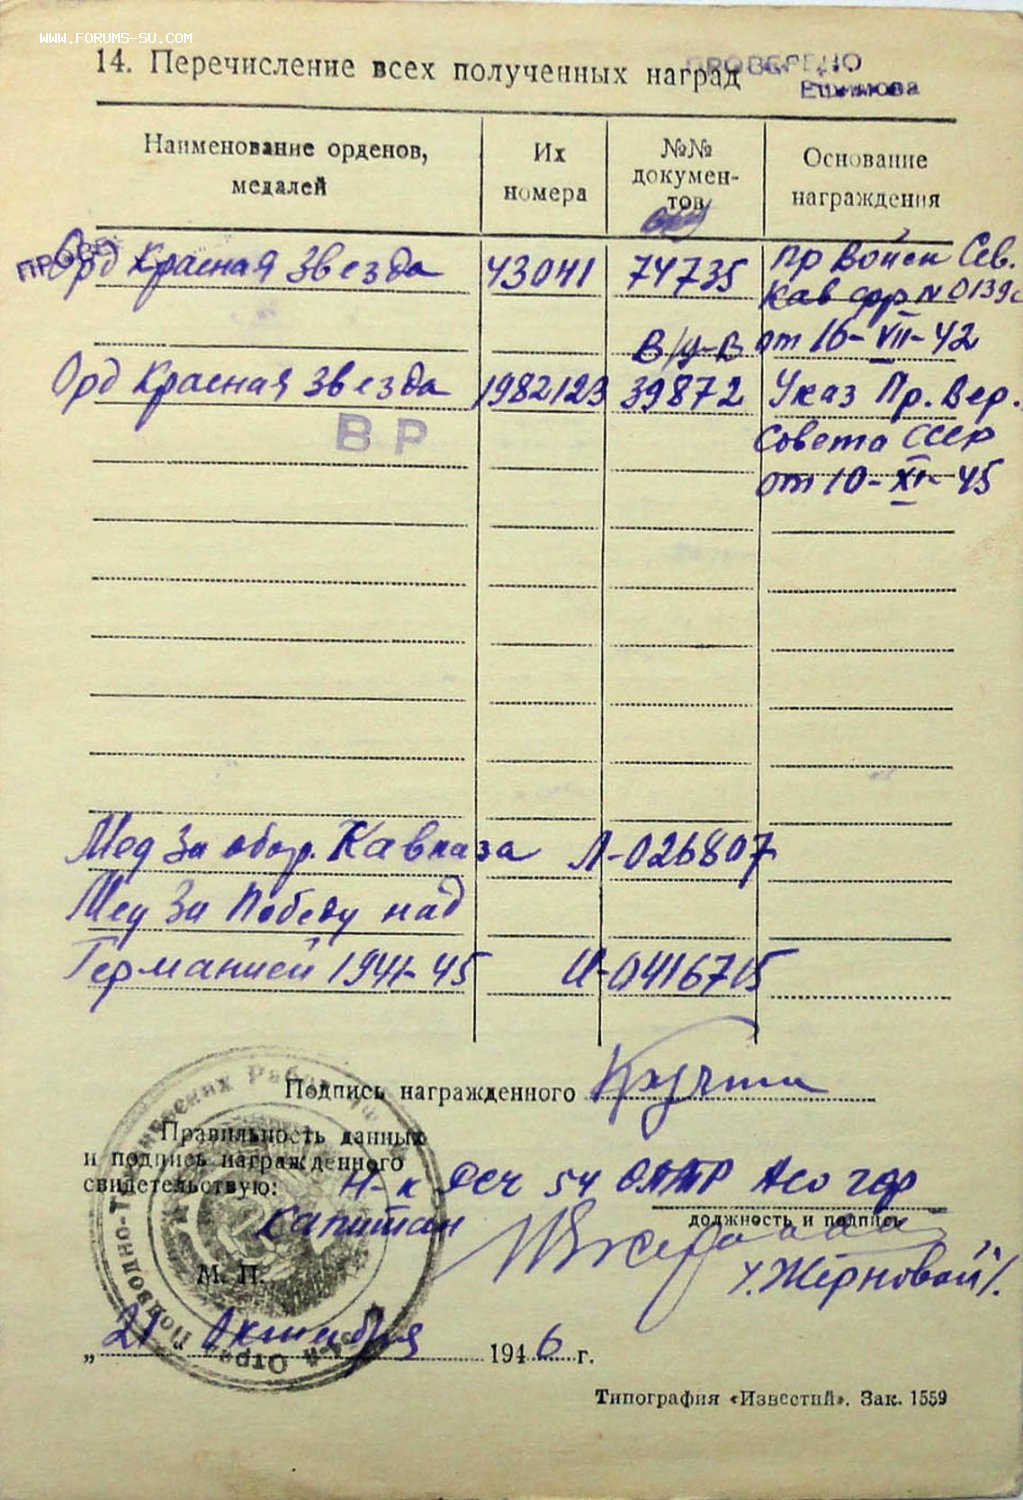 WWW.FORUMS-SU.COM
14. Перечисление всех полученных наград
ПРОВЕРЕНО
Ефимова
Наименование орденов, медалей
Их номера
№№ докумен-тов
Основание награждения
Орд Красная Звезда 43041 74735 пр Войск Сев.
Кав фр N 0139с
В/у-В от 16-VII-42
Орд Красная Звезда 1982123 39872 Указ Пр. Вер.
ВР
Совета СССР
от 10-XI-45
Мед За обор. Кавказа Л-026807
Мед За Победу над
Германией 1941-45 И-0416715
Подпись награжденного
Правильность данных
и подпись награжденного
свидетельствую: Н-к 54 гор
капитан
должность и подпись
/Жерновой/.
М. П.
„21" Октября 1946 г.
Типография «Известий». Зак. 1559